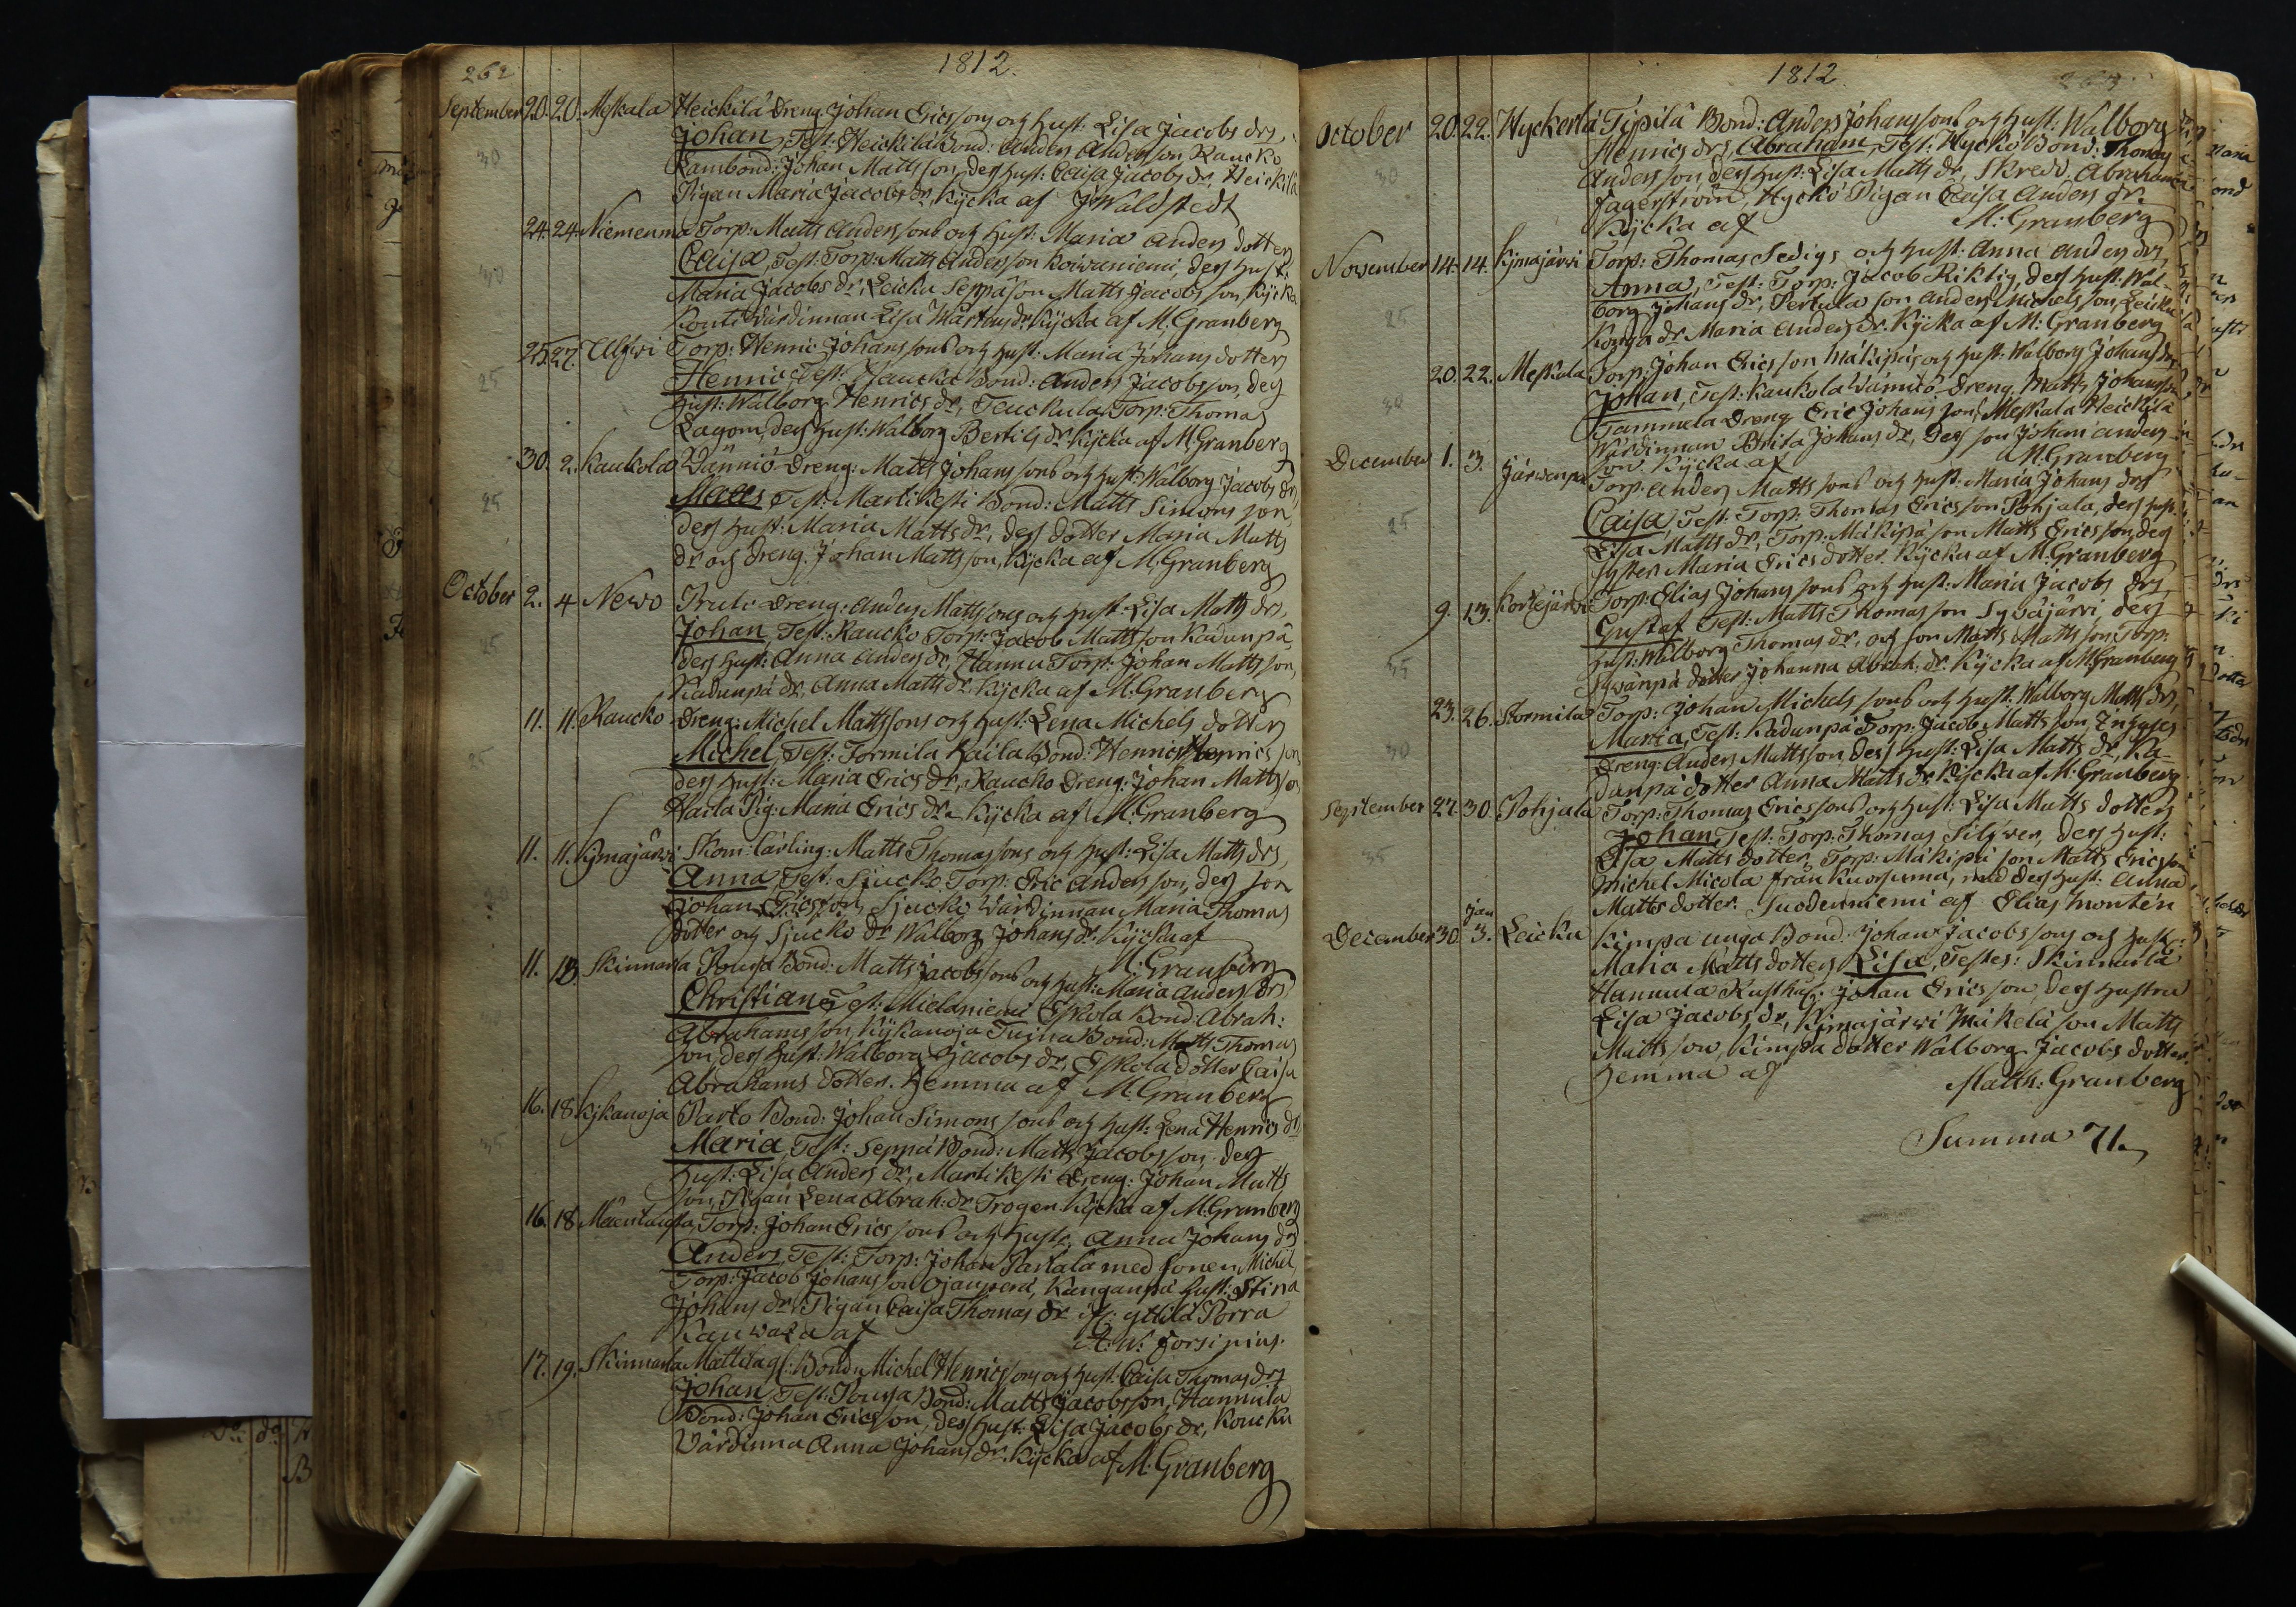 262
1812.
September 20. 20. Meskala Heickilä Dreng. Johan Ericssons och hust: Lisa Jacobs drs,
30 Johan, Test: Heickilä Bond: Anders Andersson, Raucko
Kambond: Johan Mattsson, dess hust: Caisa Jacobs dr, Heickilä
Pigan Maria Jacobs dr, Kÿcka af J. Waldstedt
24. 24. Niemenma Torp: Matts Anderssons och hust: Maria Anders dotters
30 Caisa, Test: Torp: Matts Andersson Koivaniemi, dess hust:
Maria Jacobs dr, Leicku Seppä son Matts Jacobsson, Kÿcka
Kouti Värdinnan Lisa Mårtens dr. Kÿcka af M. Granberg
25. 27. Ulfwi Torp: Henric Johanssons och hust: Maria Johans dotters
25 Henric, Test: Bond: Anders Jacobsson, dess
hust: Walborg Henrics dr, Teuckula Torp: Thomas
Lagom, dess hust: Walborg Bertils dr. Kÿcka af M. Granberg
30. 2. Kaukola Vännio Dreng: Matts Johanssons och hust: Walborg Jacobs drs
25 Matts Test: Martikesti Bond: Matts Simonsson,
dess hust: Maria Matts dr, dess dotter Maria Matts
dr och Dreng. Johan Mattsson, Kÿcka af M. Granberg
October 2. 4 Newo Pruti Dreng: Anders Mattssons och hust: Lisa Matts drs,
25 Johan, Test: Raucko Torp: Jacob Mattsson Kadunpä,
dess hust: Anna Anders dr, Hannu Torp: Johan Mattsson,
Kadunpä dr, Anna Matts dr. Kÿcka af M. Granberg
11. 11. Raucko Dreng: Michel Mattssons och hust: Lena Michels dotters
25 Michel, Test: Tormila Kaila Bond: Henric Henricsson,
dess hust: Maria Erics dr, Raucko Dreng: Johan Mattsson
Kaila Pig: Maria Erics dr. Kÿcka af M. Granberg
11. 11. Kÿmajärwi Skom: lärling: Matts Thomassons och hust: Lisa Matts drs,
Anna, Test: Sjucko Torp: Eric Andersson, dess son
Johan Ericsson, Sjucko Värdinnan Maria Thomas
dotter och Sjucko dr Walborg Johans dr. Kÿcka af
M. Granberg
11. 13. Skinnarla Pousa Bond: Matts Jacobssons och hust: Maria Anders drs
Christian, Test: Mielaniemi Eskola Bond: Abrah:
Abrahamsson, Kÿkanoja Bond: Matts Thomas
son, dess hust: Walborg Jacobs dr, Eskola dotter Caisa
Abrahams dotter. Hemma af M. Granberg
16. 18. Kÿkanoja Parto Bond: Johan Simonssons och hust: Lena Henrics drs
35 Maria, Test: Seppä Bond: Matts Jacobsson, dess
hust: Lisa Anders dr, Martikesti Dreng: Johan Matts
son, Pigan Lena Abrah: dr Trogen. Kÿcka af M. Granberg
16. 18 Mäentausta, Torp: Johan Ericssons och hust: Anna Johans drs
Anders, Test: Torp: Johan Parkala med sonen Michel,
Torp: Jacob Johansson Ojanperä, Kanganpä hust: Stina
Johans dr, Pigan Caisa Thomas dr ifr: Porra
af A: W: Forsinius.
17. 19. Skinnarla Mattila Bond: Michel Henricssons och hust: Caisa Thomas drs
Johan, Test: Pousa Bond: Matts Jacobsson, Hannula
Bond: Johan Ericsson, dess hust: Lisa Jacobs dr, Koucku
Värdinna Anna Johans dr. Kÿcka af M. Granberg
1812
263
October 20. 22. Hyckerlä Tipilä Bond: Anders Johanssons och hust: Walborg
30 Henrics drs, Abraham, Test: Hyckö Bond: Thomas
Andersson, dess hust: Lisa Matts dr, Skredd: Abraham
Fagerström, Hyckö Pigan Caisa Anders dr.
Kÿcka af M. Granberg
November 14. 14. Kÿmajärvi Torp: Thomas Sedigs och hust: Anna Anders drs,
25 Anna, Test: Torp: Jacob Riktig, dess hust: Wal-
borg Johans dr, Perkula son Anders Michelsson, Leicku
Konga dr Maria Anders dr. Kÿcka af M: Granberg
20. 22. Meskala Torp: Johan Ericsson Mäkipäs och hust: Walborg Johans drs
30 Johan, Test: Kaukola Wännio Dreng Matts Johansson,
Tammela Dreng Eric Johansson, Meskala Heickilä
Wärdinnan Brita Johans dr, dess son Johan Anders-
son. Kÿcka af M. Granberg
December 1. 3. Järwenpä Torp. Anders Mattssons och hust: Maria Johans drs
25 Caisa Test: Torp: Thomas Ericsson Pohjala, dess hust:
Lisa Matts dr, Torp: Mäkipä son Matts Ericsson, dess
syster Maria Erics dotter. Kÿcka af M. Granberg
9. 13. Kortejärwi Torp: Elias Johanssons och hust: Maria Jacobs drs,
35 Gustaf Test: Matts Thomasson Sywäjärvi, dess
hust: Walborg Thomas dr, och son Matts Mattsson, Torp:
dotter Johanna Abrah: dr. Kÿcka af M. Granberg
23. 26. Tormila Torp: Johan Michelssons och hust: Walborg Matts drs,
30 Maria, Test: Kadunpä Torp: Jacob Mattsson
Dreng: Anders Mattsson, dess hust: Lisa Matts dr, Ka-
dunpä dotter Anna Matts dr. Kÿcka af M: Granberg
September 27. 30. Pohjala Torp: Thomas Ericssons och hust: Lisa Matts dotters
35 Johan, Test: Torp: Thomas Silfwer, dess hust:
Lisa Matts dotter, Torp: Mäkipä son Matts Ericsson
Michel Micola från med dess hust: Anna
Matts dotter. Suodenniemi af Elias Montén
December 30. Jan 3. Leicku Kimpa unga Bond: Johan Jacobssons och hust:
Maria Matts dotters Lisa, Testes: Skinnarla
Hannula Rusthåll: Johan Ericsson, dess hustru
Lisa Jacobs dr, Kÿmajärwi Mäkelä son Matts
Mattsson, Kimpa dotter Walborg Jacobs dotter.
Hemma af Matth: Granberg
Summa 71.